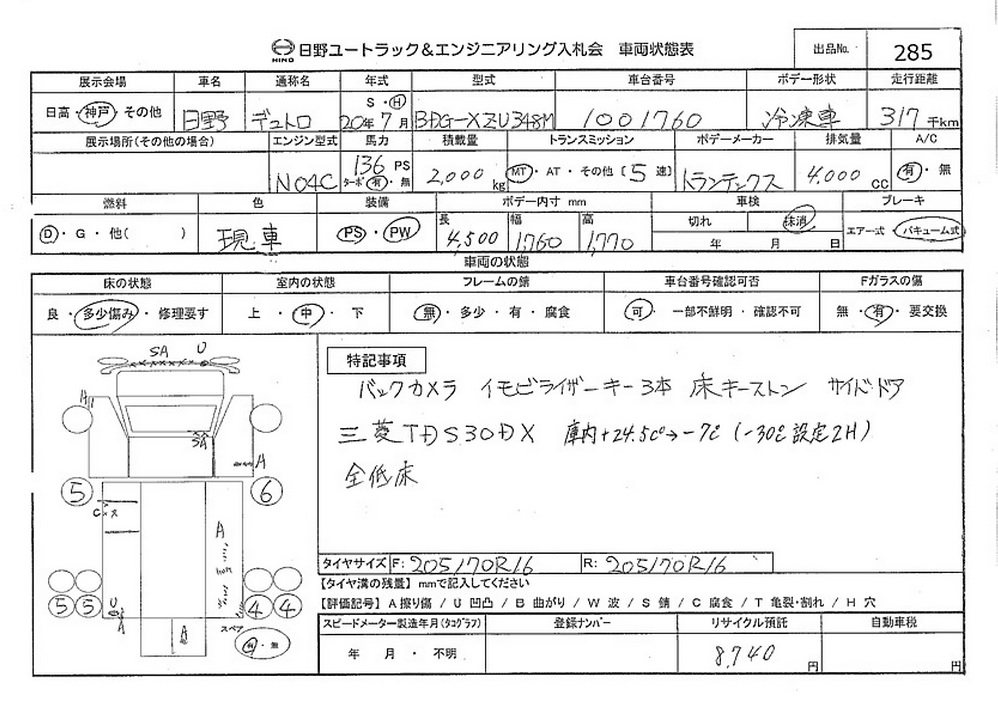 HINO 日野ユートラック＆エンジニアリング入札会 車両状態表 出品No. 285
展示会場 車名 通称名 年式 型式 車台番号 ボデー形状 走行距離
日高・神戸・その他 日野 デュトロ S・H 20年7月 BDG-XZU348M 1001760 冷凍車 317千km
展示場所(その他の場合) エンジン型式 馬力 積載量 トランスミッション ボデーメーカー 排気量 A/C
N04C 136 PS ターボ 有・無 2,000 kg MT・AT・その他 [5 速] トランテックス 4,000 CC 有・無
燃料 色 装備 ボデー内寸 mm 車検 ブレーキ
D・G・他( ) 現車 PS・PW 長 4,500 幅 1,760 高 1,770 切れ 抹消 年 月 日 エアー式・バキューム式
車両の状態
床の状態 室内の状態 フレームの錆 車台番号確認可否 Fガラスの傷
良・多少傷み・修理要す 上・中・下 無・多少・有・腐食 可・一部不鮮明・確認不可 無・有・要交換
特記事項
バックカメラ イモビライザーキー3本 床キーストン サイドドア
三菱TDS30DX 庫内+24.5c°→-7℃ (-30℃設定2H)
全低床
SA U
A
SA
A
5 6
C
A
5 5 U A 4 4
A
スペア 有・無
タイヤサイズ F: 205/70R16 R: 205/70R16
【タイヤ溝の残量】 mmで記入してください
【評価記号】 A 擦り傷 / U 凹凸 / B 曲がり / W 波 / S 錆 / C 腐食 / T 亀裂・割れ / H 穴
スピードメーター製造年月(タコグラフ) 登録ナンバー リサイクル預託 自動車税
年 月・不明 8,740 円 円